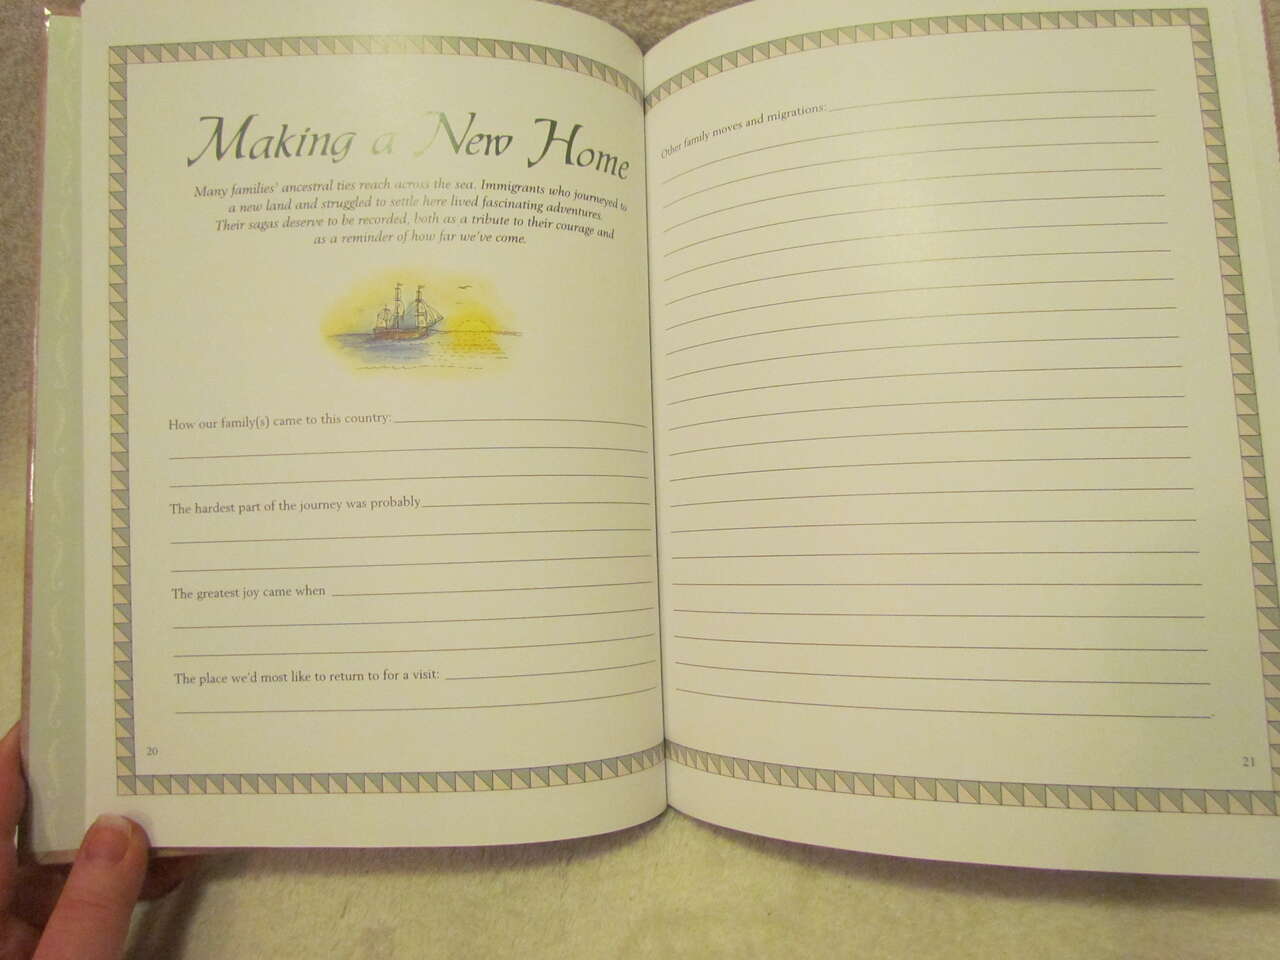 Making a New Home
Many families' ancestral ties reach across the sea. Immigrants who journeyed to
a new land and struggled to settle here lived fascinating adventures.
Their sagas deserve to be recorded, both as a tribute to their courage and
as a reminder of how far we've come.
How our family(s) came to this country:
The hardest part of the journey was probably
The greatest joy came when
The place we'd most like to return to for a visit:
20
Other family moves and migrations:
21